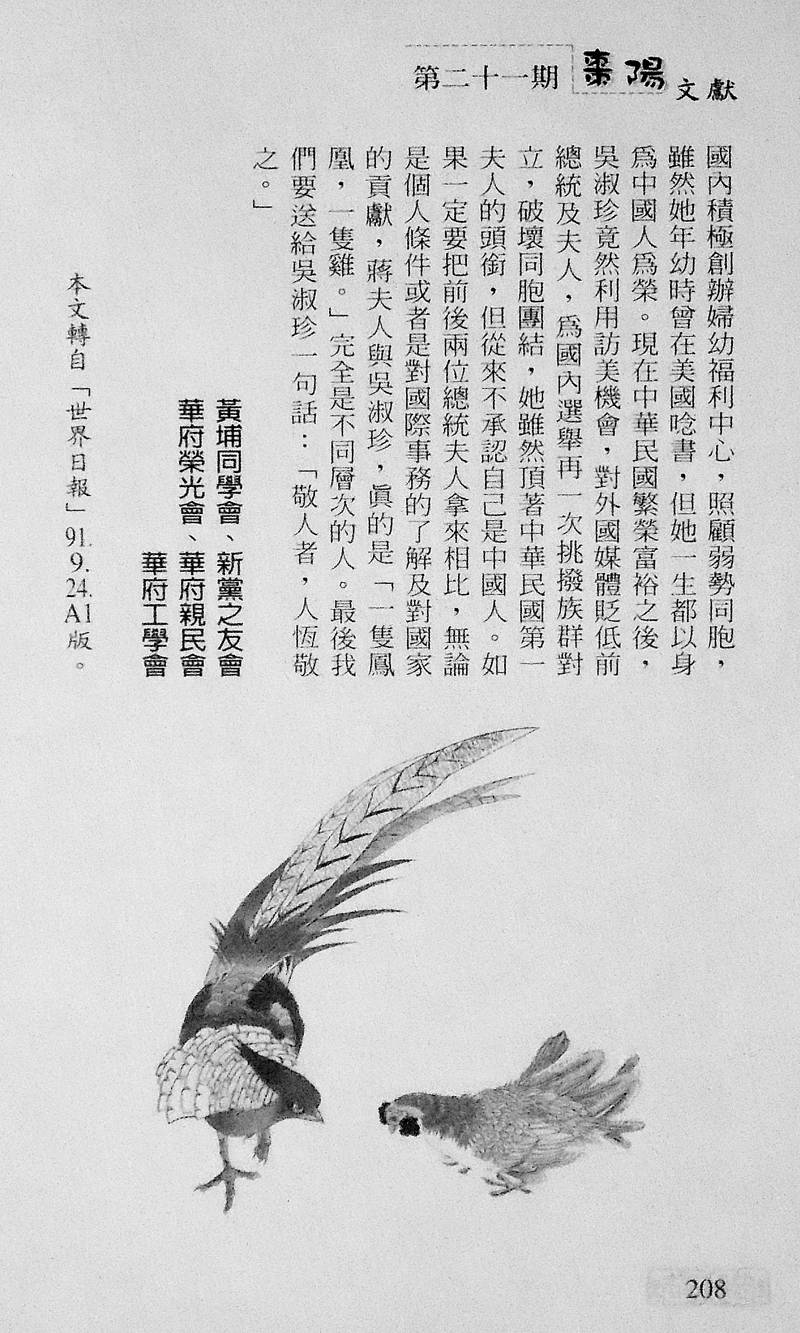 第二十一期 棗陽文獻
國內積極創辦婦幼福利中心，照顧弱勢同胞，
雖然她年幼時曾在美國唸書，但她一生都以身
爲中國人爲榮。現在中華民國繁榮富裕之後，
吳淑珍竟然利用訪美機會，對外國媒體貶低前
總統及夫人，爲國內選舉再一次挑撥族群對
立，破壞同胞團結，她雖然頂著中華民國第一
夫人的頭銜，但從來不承認自己是中國人。如
果一定要把前後兩位總統夫人拿來相比，無論
是個人條件或者是對國際事務的了解及對國家
的貢獻，蔣夫人與吳淑珍，眞的是「一隻鳳
凰，一隻雞。」完全是不同層次的人。最後我
們要送給吳淑珍一句話：「敬人者，人恆敬
之。」
黃埔同學會、新黨之友會
華府榮光會、華府親民會
華府工學會
本文轉自「世界日報」91.9.24.A1版。
208